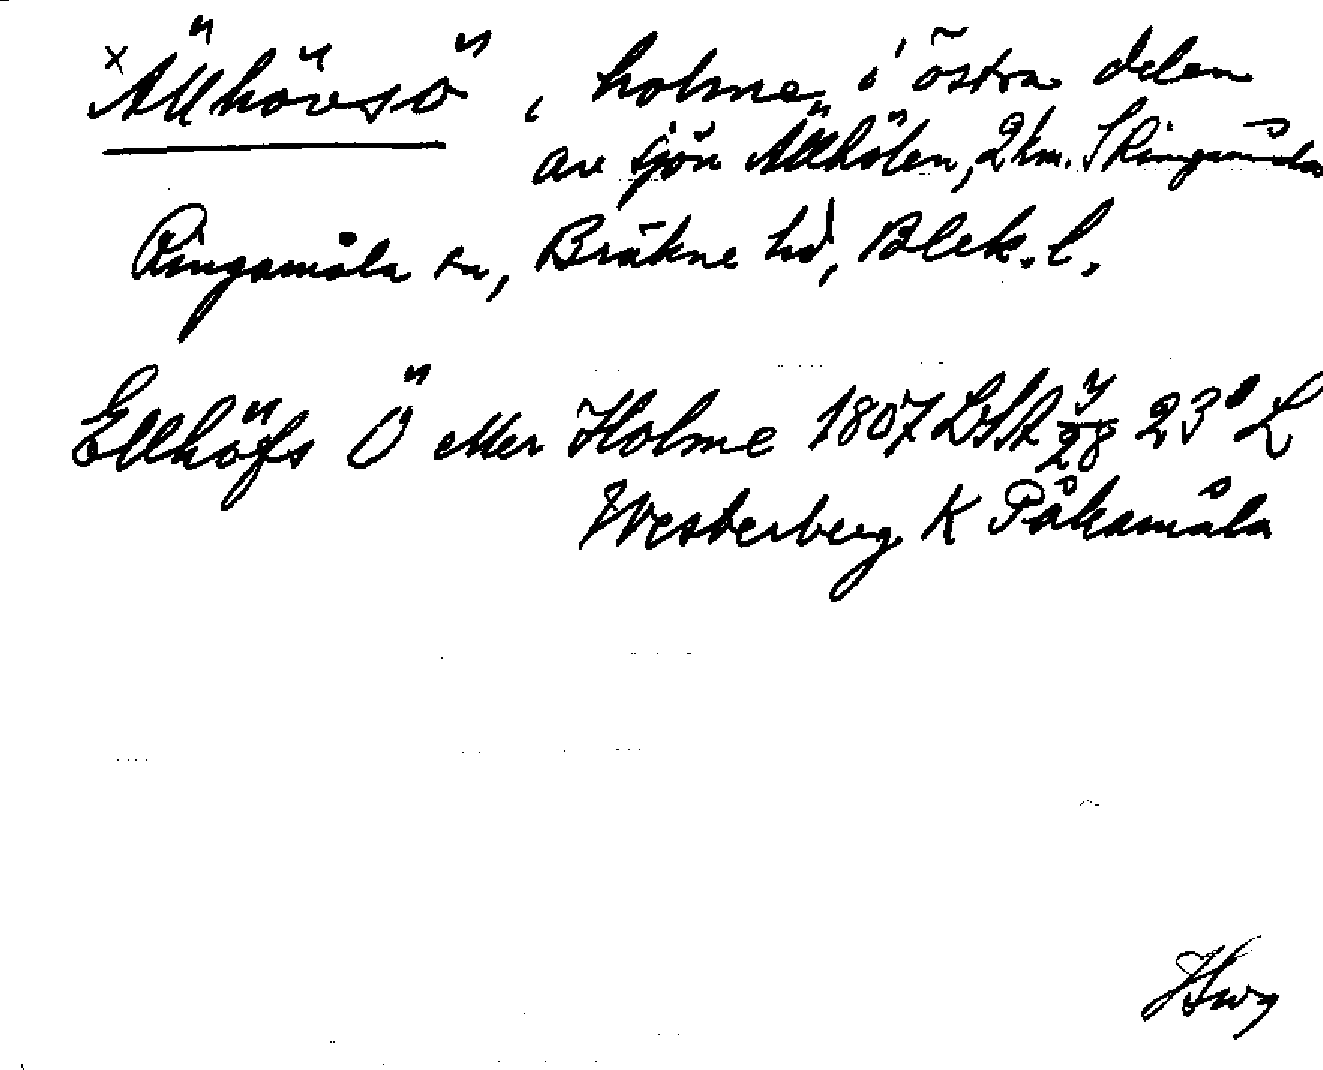 x Ällhövsö, holme i östra delen
av sjön Ällhölen, 2 km. S Ringamåla
Ringamåla sn, Bräkne hd, Blek. l.
Ellhöfs Ö eller Holme 1807 LSA 23° L
Westerberg K Påkamåla